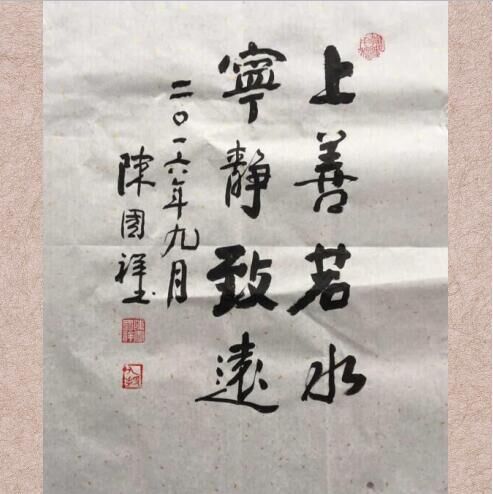 上善若水
寧靜致遠
二〇一六年九月
陳國祥书